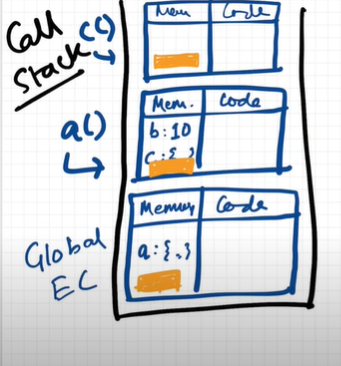 Call
Stack
c()
Mem
Code
a()
Mem.
Code
b:10
c:{ }
Global
EC
Memory
Code
a:{..}